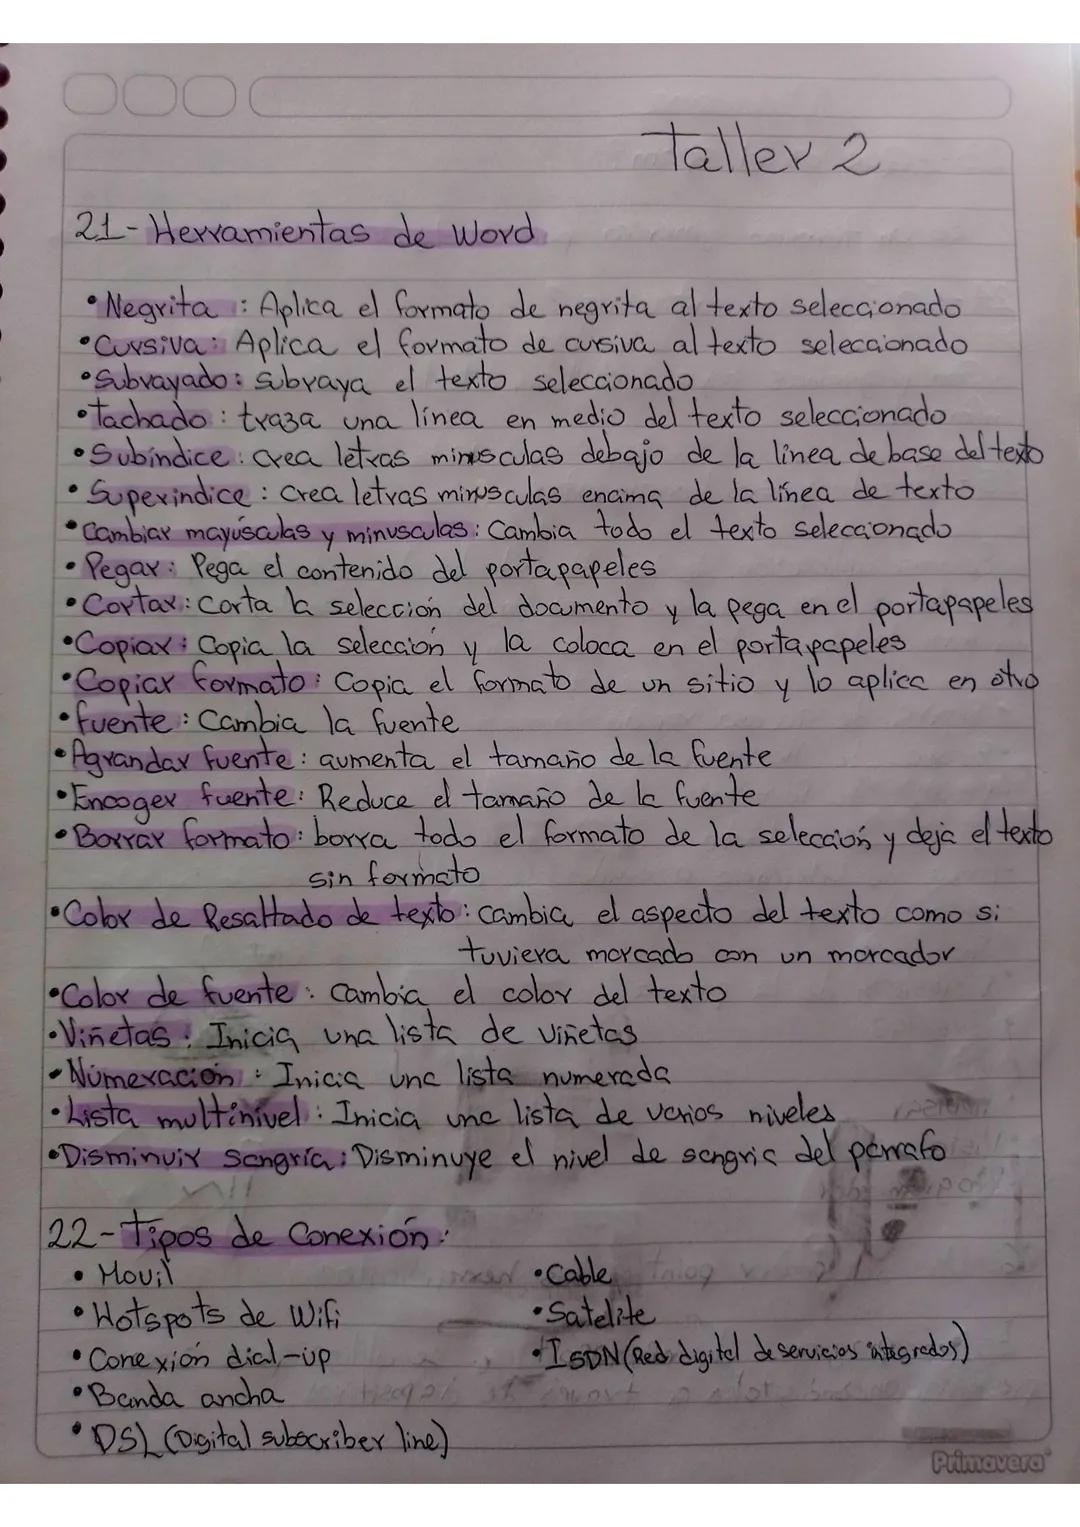 Taller 2
21- Herramientas de Word
•Negrita : Aplica el formato de negrita al texto seleccionado
•Cursiva: Aplica el formato de cursiva al texto seleccionado
•Subrayado: subraya el texto seleccionado
•Tachado : traza una línea en medio del texto seleccionado
•Subíndice: crea letras minusculas debajo de la línea de base del texto
•Superindice : crea letras minusculas encima de la línea de texto
•Cambiar mayúsculas y minusculas: Cambia todo el texto seleccionado
•Pegar: Pega el contenido del portapapeles
•Cortar: Corta la selección del documento y la pega en el portapapeles
•Copiar: Copia la selección y la coloca en el portapapeles
•Copiar formato: Copia el formato de un sitio y lo aplica en otro
•fuente: Cambia la fuente
•Agrandar fuente: aumenta el tamaño de la fuente
•Encoger fuente: Reduce el tamaño de la fuente
•Borrar formato: borra todo el formato de la selección y deja el texto
sin formato
•Color de Resaltado de texto: cambia el aspecto del texto como si
tuviera marcado con un marcador
•Color de fuente: Cambia el color del texto
•Viñetas: Inicia una lista de viñetas
•Númeración: Inicia una lista numerada
•Lista multinivel: Inicia una lista de varios niveles
•Disminuir sangría: Disminuye el nivel de sangria del párrafo
22- Tipos de Conexión:
• Movil
• Hotspots de Wifi
• Conexión dial-up
• Banda ancha
• DSL (Digital subscriber line)
•Cable
•Satelite
•ISDN (Red digital de servicios integrados)
Primavera